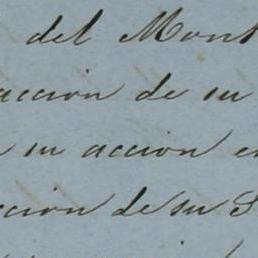 del Mont
accion de su
su accion e
ccion de su S